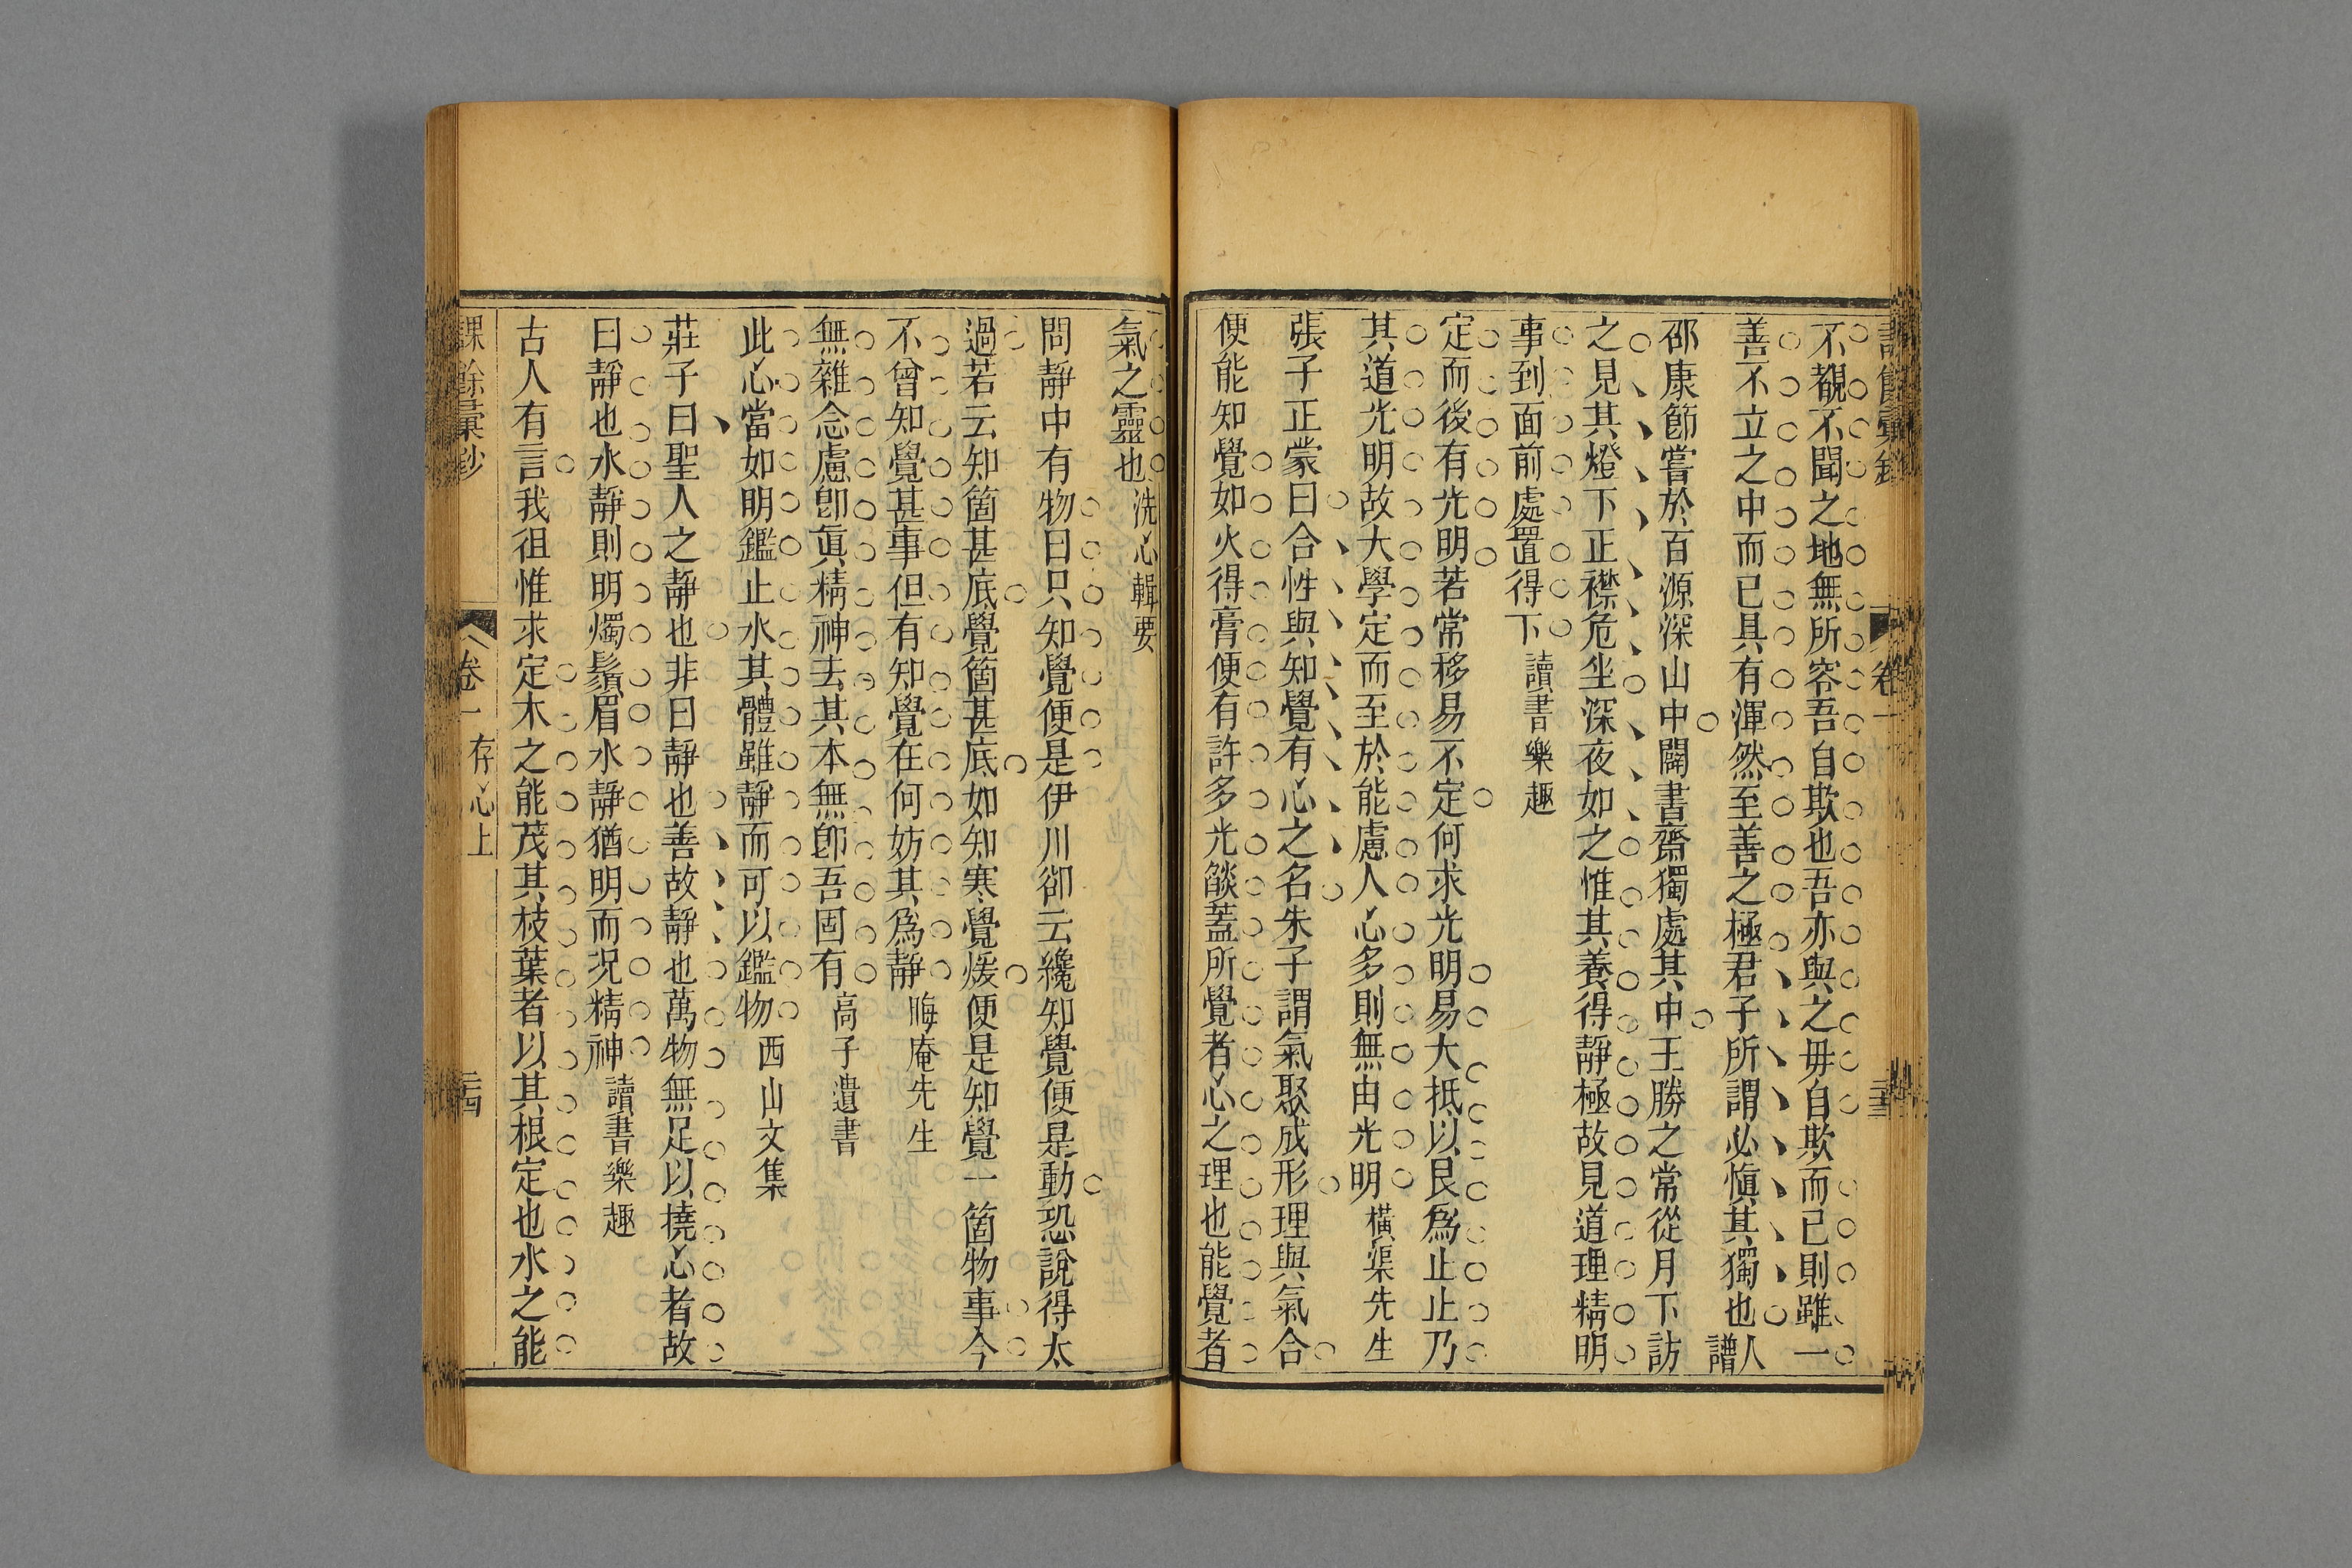 課餘彙鈔
卷一
不覩不聞之地無所容吾自欺也吾亦與之毋自欺而已則雖一
善不立之中而已具有渾然至善之極君子所謂必愼其獨也人譜
邵康節嘗於百源深山中闢書齋獨處其中王勝之常從月下訪
之見其燈下正襟危坐深夜如之惟其養得靜極故見道理精明
事到面前處置得下讀書樂趣
定而後有光明若常移易不定何求光明易大抵以艮爲止止乃
其道光明故大學定而至於能慮人心多則無由光明橫渠先生
張子正蒙曰合性與知覺有心之名朱子謂氣聚成形理與氣合
便能知覺如火得膏便有許多光燄蓋所覺者心之理也能覺者
氣之靈也洗心輯要
問靜中有物曰只知覺便是伊川卻云纔知覺便是動恐說得太
過若云知箇甚底覺箇甚底如知寒覺煖便是知覺一箇物事今
不曾知覺甚事但有知覺在何妨其爲靜晦庵先生
無雜念慮卽眞精神去其本無卽吾固有高子遺書
此心當如明鑑止水其體雖靜而可以鑑物西山文集
莊子曰聖人之靜也非曰靜也善故靜也萬物無足以撓心者故
曰靜也水靜則明燭鬚眉水靜猶明而況精神讀書樂趣
古人有言我徂惟求定木之能茂其枝葉者以其根定也水之能
課餘彙鈔
卷一 存心上
二四